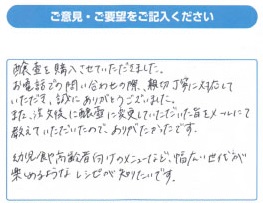 ご意見・ご要望をご記入ください
醸壺を購入させていただきました。
お電話での問い合わせの際、親切丁寧に対応して
いただき、誠にありがとうございました。
また、注文後に醸壺に変更していただいた旨をメールにて
教えていただいたので、ありがたかったです。
幼児食や高齢者向けのメニューなど、幅広い世代が
楽めるようなレシピが知りたいです。